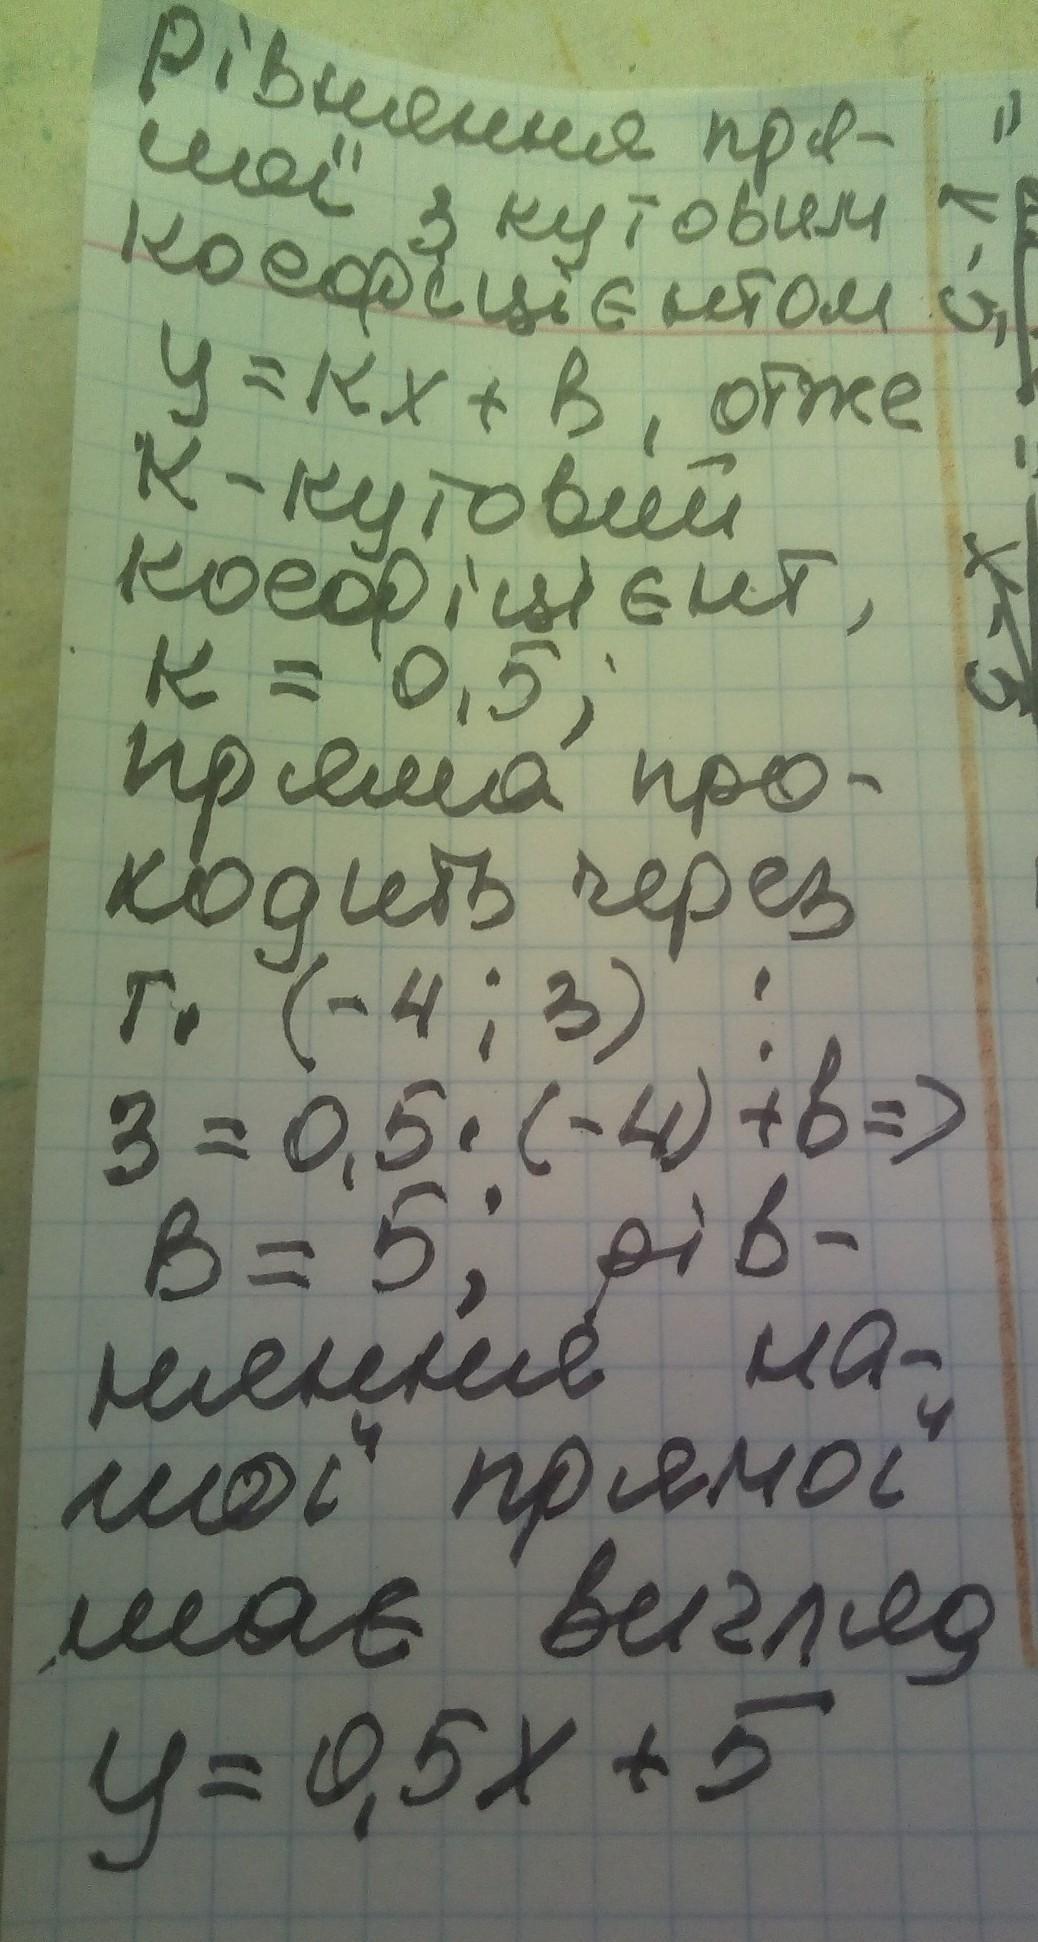 Рівняння пря-
мої з кутовим
коефіцієнтом
у = кх + в, отже
к - кутовий
коефіцієнт,
к = 0,5;
пряма про-
ходить через
т. (-4; 3) :
3 = 0,5 · (-4) + в =>
в = 5; рів-
няння на-
шої прямої
має вигляд
у = 0,5х + 5